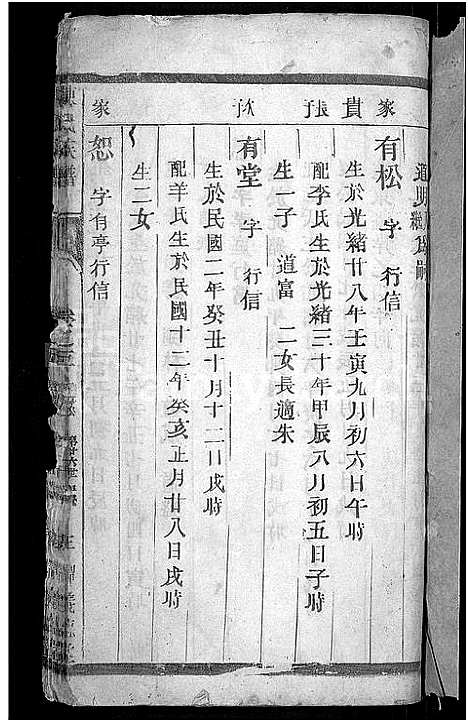 家 貴 張 欽 家
有松 字 行信
生於光緒廿八年壬寅九月初六日午時
配李氏生於光緒三十年甲辰八月初五日子時
生一子 道富 二女長適朱
有堂 字 行信
生於民國二年癸丑十月十二日戌時
配羊氏生於民國十二年癸亥正月廿八日戌時
生二女
恕 字有亭行信
氏族譜